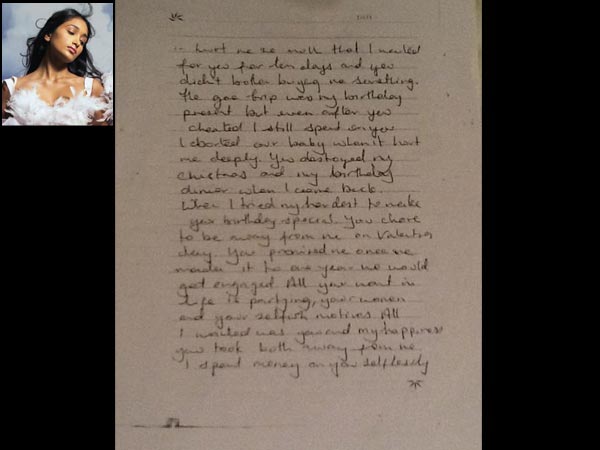 .. hurt me so much that I waited
for you for ten days and you
didn't bother buying me something.
The goa trip was my birthday
present but even after you
cheated I still spent on you
I aborted our baby when it hurt
me deeply. You destroyed my
christmas and my birthday
dinner when I came back.
When I tried my hardest to make
your birthday special. You chose
to be away from me on Valentines
day. You promised me once we
made it to one year we would
get engaged. All you want in
life is partying, your women
and your selfish motives. All
I wanted was you and my happiness
you took both away from me
I spent money on you selflessly